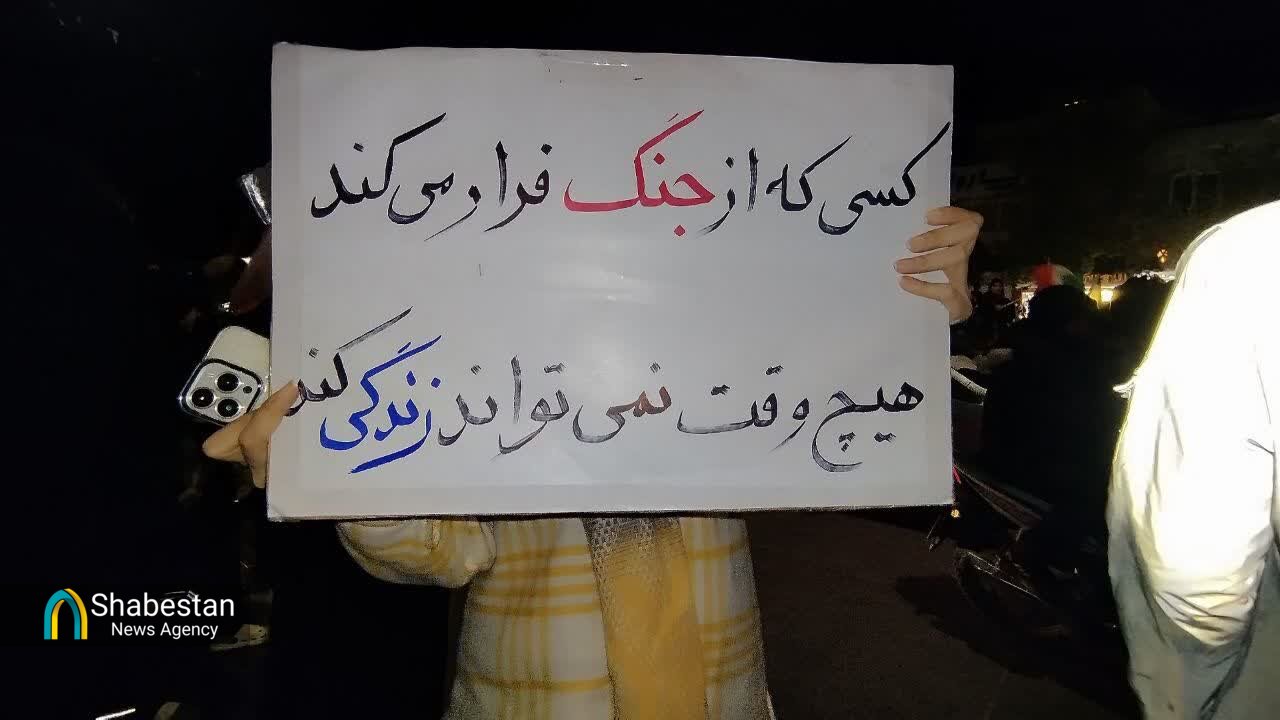 کسی که از جنگ فرار می کند
هیچ وقت نمی تواند زندگی کند
Shabestan
News Agency